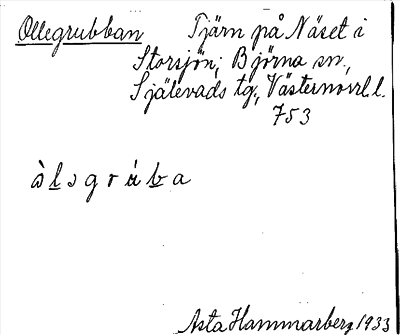 Ollegrubban Tjärn på Näset i
Storsjön; Björna sn.,
Själevads tg., Västernorrl. l.
753
àlsgrúba
Asta Hammarberg 1933